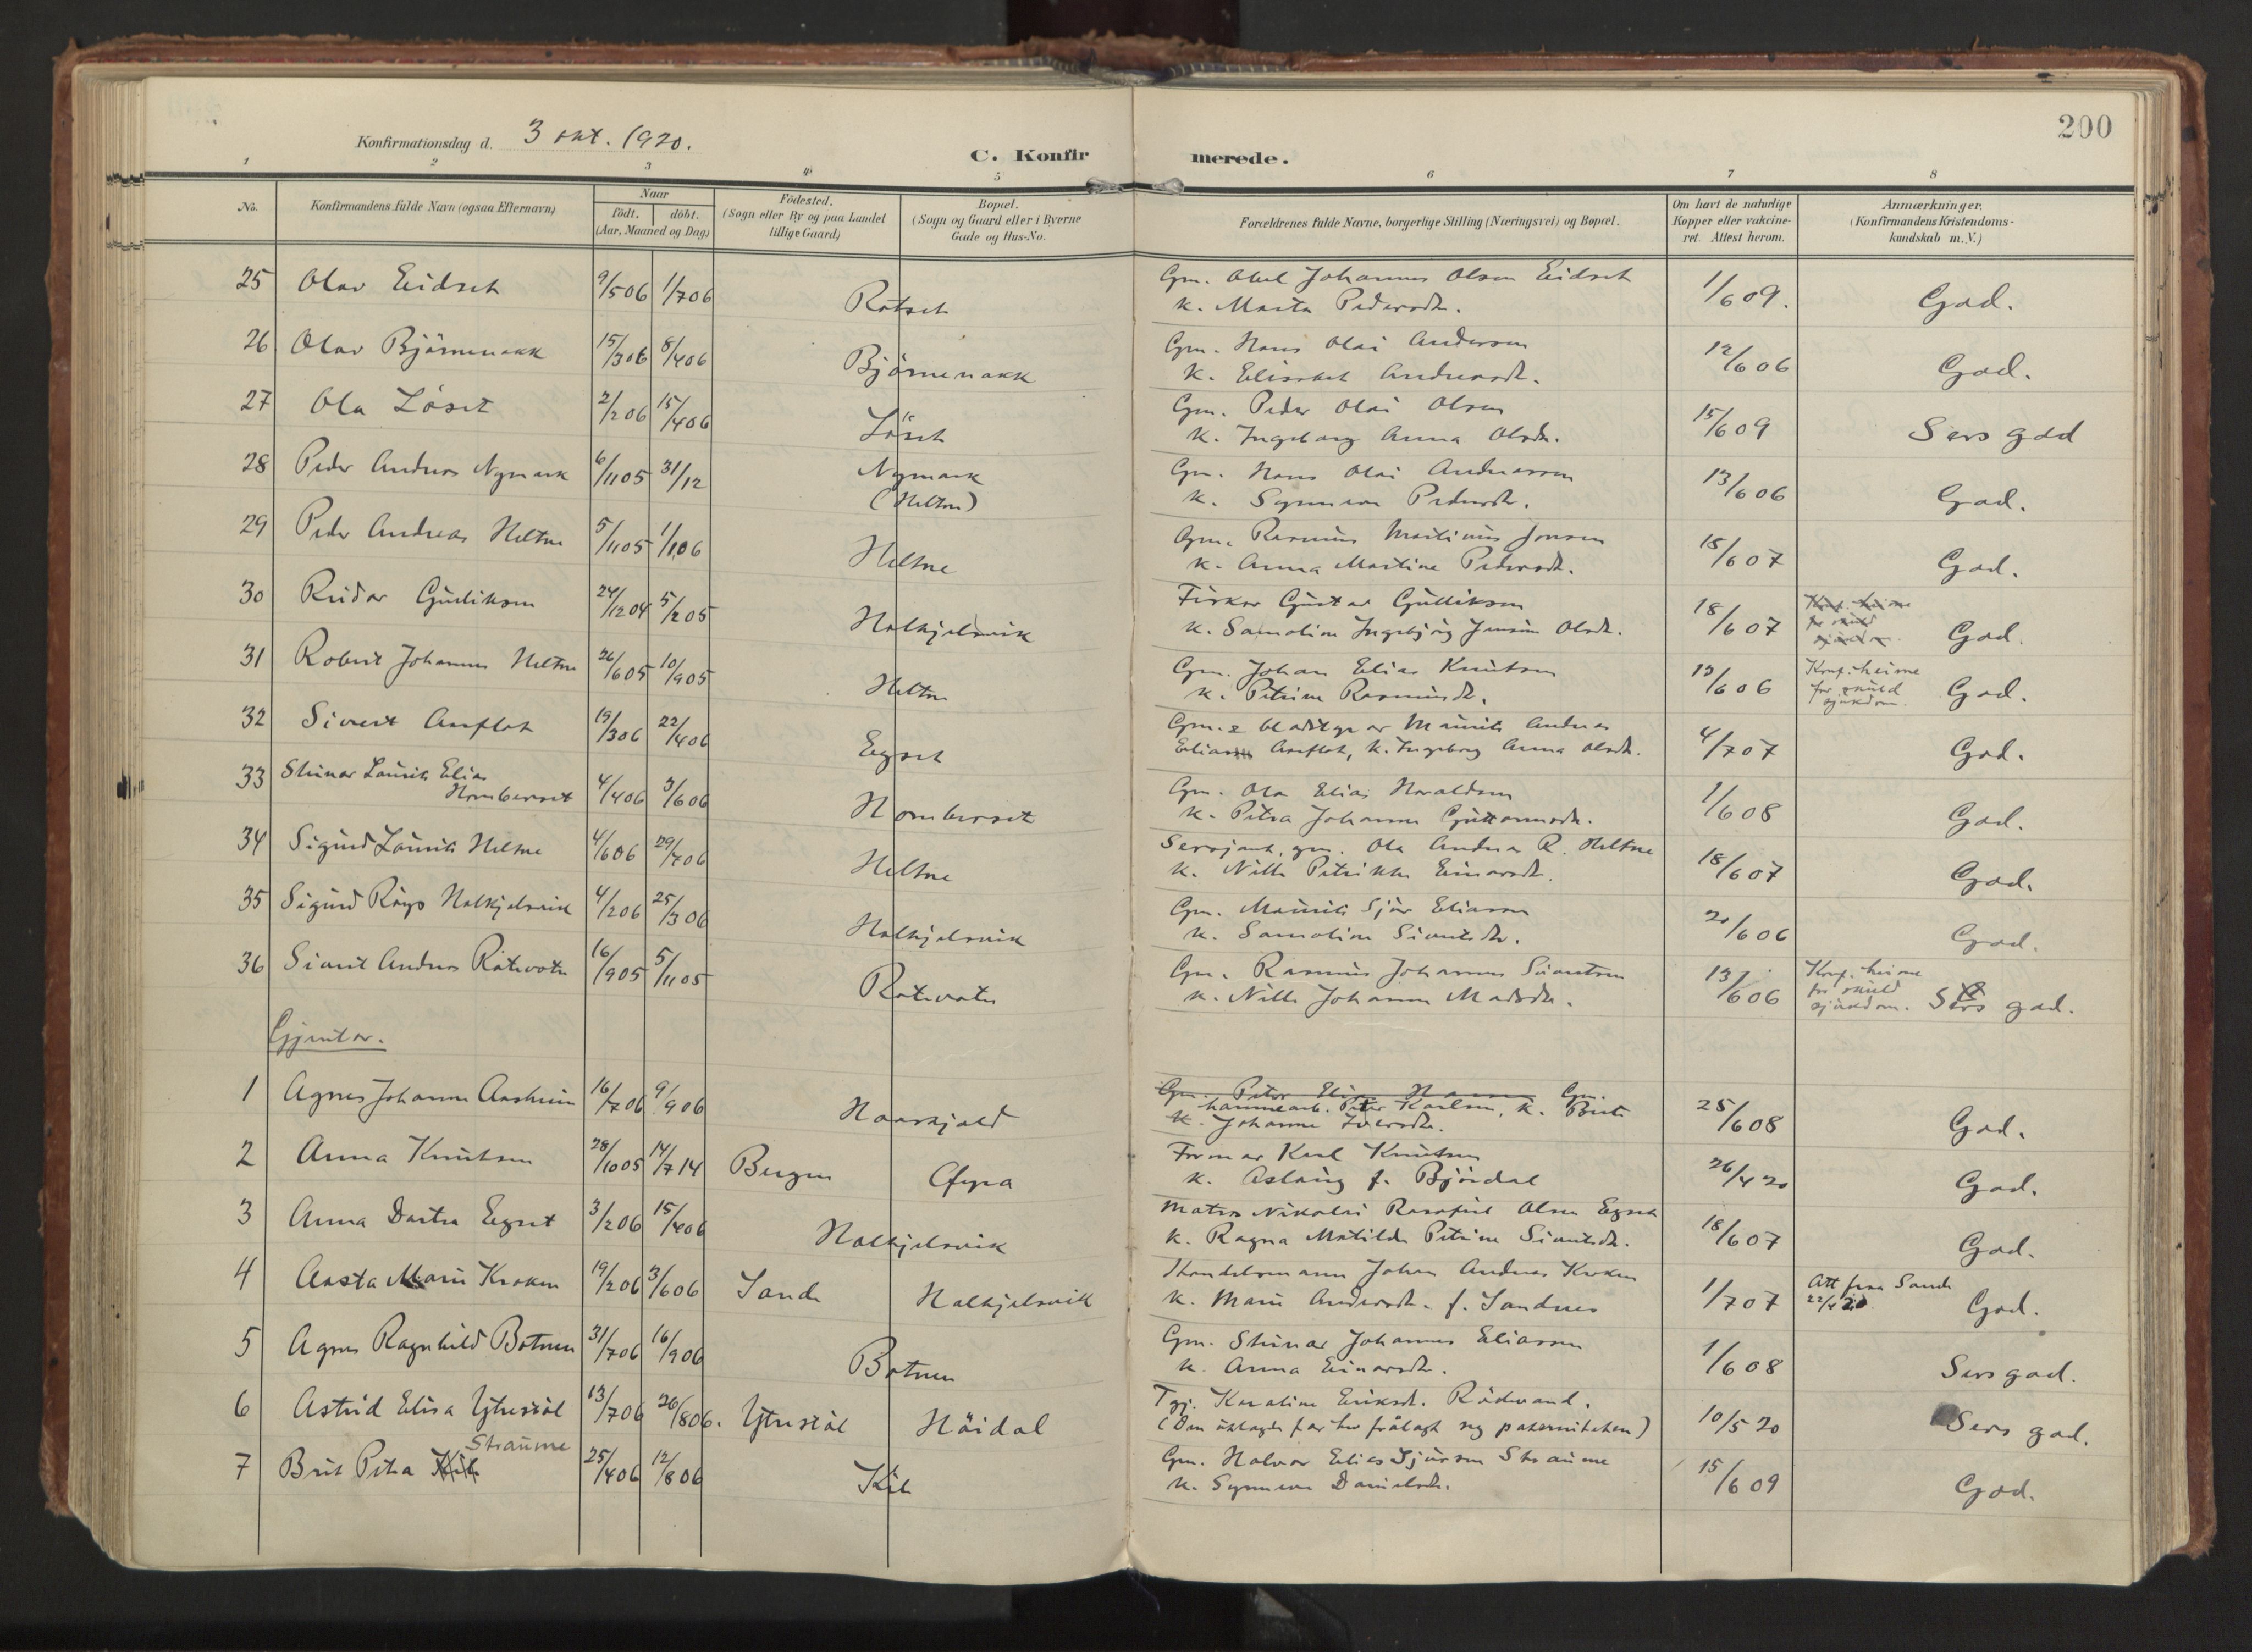 200
Konfirmationsdag d. 3 okt. 1920.
C. Konfirmerede.
1 2 3 4 5 6 7 8
No.
Konfirmandens fulde Navn (ogsaa Efternavn)
Naar
födt. döbt.
(Aar, Maaned og Dag)
Födested.
(Sogn eller By og paa Landet
tillige Gaard)
Bopæl.
(Sogn og Gaard eller i Byerne
Gade og Hus-No.
Forældrenes fulde Navne, borgerlige Stilling (Næringsvei) og Bopæl.
Om havt de naturlige
Kopper eller vakcine-
ret. Attest herom.
Anmærkninger.
(Konfirmandens Kristendoms-
kundskab m.V.)
25 Olav Eidset 9/5 06 1/7 06 Rotset Gm. Abel Johannes Olsen Eidset 1/6 09. God.
K. Marta Pedersdtr.
26 Olav Björnenakk 15/3 06 8/4 06 Björnenakk Gm. Hans Olai Andersen 12/6 06 God.
K. Elisabet Andersdtr.
27 Ola Löset 2/2 06 15/4 06 Löset Gm. Peder Olai Olsen 15/6 09 Sers god
K. Ingeborg Anna Olsdtr.
28 Peder Andreas Nymark 6/11 05 31/12 Nymark Gm. Hans Olai Andreassen 13/6 06 God.
(Heltne) K. Synneva Pedersdtr.
29 Peder Andreas Heltne 5/11 05 1/1 06 Heltne Gm. Rasmus Martinus Jonsen 18/6 07 God.
K. Anna Martine Pedersdtr.
30 Reidar Gjulliksen 24/12 04 5/2 05 Halkjelsvik Fisker Gustav Gjulliksen 18/6 07 God.
K. Samoline Ingebjörg Jensine Olsdtr.
31 Robert Johannes Heltne 26/6 05 10/9 05 Heltne Gm. Johan Elias Knutsen 13/6 06 Konf. heime
K. Petrine Rasmusdtr. for skuld
sjukdom. God.
32 Sivert Aarflot 19/3 06 22/4 06 Egset Gm. & bladstyrar Maurits Andreas 4/7 07 God.
Elias Aarflot, K. Ingeborg Anna Olsdtr.
33 Steinar Laurits Elias
Homberset 4/4 06 3/6 06 Homberset Gm. Ola Elias Haraldsen 1/6 08 God.
K. Petra Johanne Guttormsdtr.
34 Sigurd Laurits Heltne 4/6 06 29/7 06 Heltne Sersjant, gm. Ola Andreas R. Heltne 18/6 07 God.
K. Nille Petrikke Einarsdtr.
35 Sigurd Röys Halkjelsvik 4/2 06 25/3 06 Halkjelsvik Gm. Maurits Sjur Eliassen 20/6 06 God.
K. Samoline Sivertsdtr.
36 Sivert Andreas Rötevatn 16/9 05 5/11 05 Rötevatn Gm. Rasmus Johannes Sivertsen 13/6 06 Konf. heime
K. Nille Johanne Madsdtr. for skuld
sjukdom. Sers god.
Gjentor.
1 Agnes Johanne Aasheim 16/7 06 9/9 06 Haaskjold Gm. Peter Elias Hansen Gm.
hamnearb. Peter Karlsen, K. Berte 25/6 08 God.
K. Johanne Iversdtr.
2 Anna Knutsen 28/10 05 14/7 14 Bergen Öyra Formar Karl Knutsen 26/4 20 God.
K. Aslaug f. Björdal
3 Anna Dortea Egset 3/2 06 15/4 06 Halkjelsvik Matros Nikolai Rasofiel Olsen Egset 18/6 07 God.
K. Ragna Matilde Petrine Sivertsdtr.
4 Aasta Marie Kroken 19/2 06 3/6 06 Sande Halkjelsvik Handelsmann Johan Andreas Kroken 1/7 07 Att fraa Sande
K. Marie Andersdtr. f. Sandnes 22/4 20. God.
5 Agnes Ragnhild Botnen 31/7 06 16/9 06 Botnen Gm. Steinar Johannes Eliassen 1/6 08 Sers god.
K. Anna Einarsdtr.
6 Astrid Elisa Ytrestöl 13/7 06 26/8 06. Ytrestöl Höidal Tgj. Karoline Eriksdt. Rödvand. 10/5 20 Sers god.
(Den utlagde far hev fråsagt seg paterniteten)
7 Brit Petra Kile Straume 25/4 06 12/8 06 Kile Gm. Halvor Elias Sjursen Straume 15/6 09 God.
K. Synneva Danielsdtr.